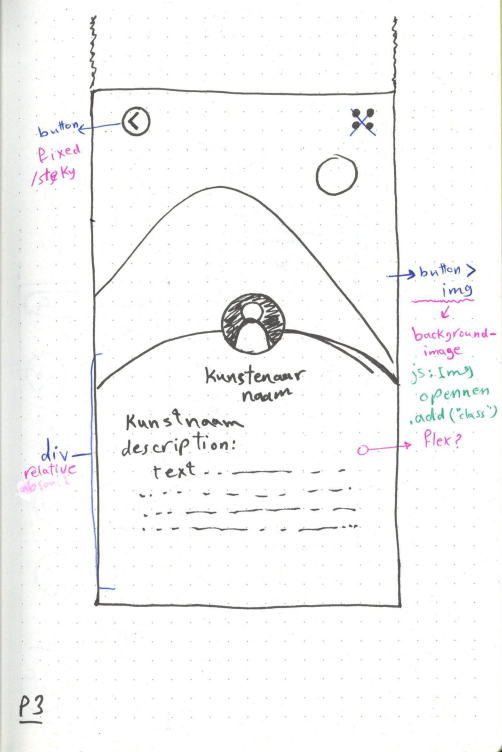 button
fixed
/sticky
button >
img
background-
image
js: Img
opennen
.add ("class")
flex?
Kunstenaar
naam
Kunstnaam
description:
text
div
relative
P3